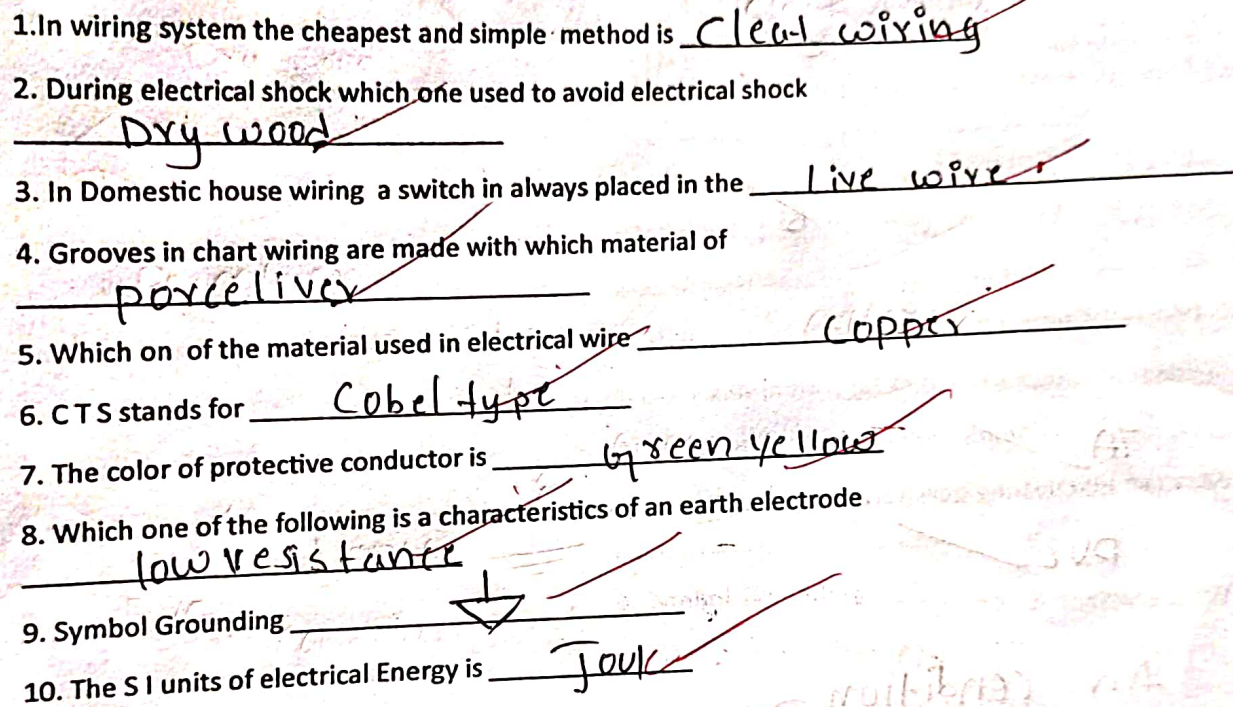 1.In wiring system the cheapest and simple method is Cleat wiring
2. During electrical shock which one used to avoid electrical shock
Dry wood
3. In Domestic house wiring a switch in always placed in the Live wire
4. Grooves in chart wiring are made with which material of
porceliver
5. Which on of the material used in electrical wire copper
6. C T S stands for Cobel type
7. The color of protective conductor is Green yellow
8. Which one of the following is a characteristics of an earth electrode
low resistance
9. Symbol Grounding
10. The S I units of electrical Energy is Joule